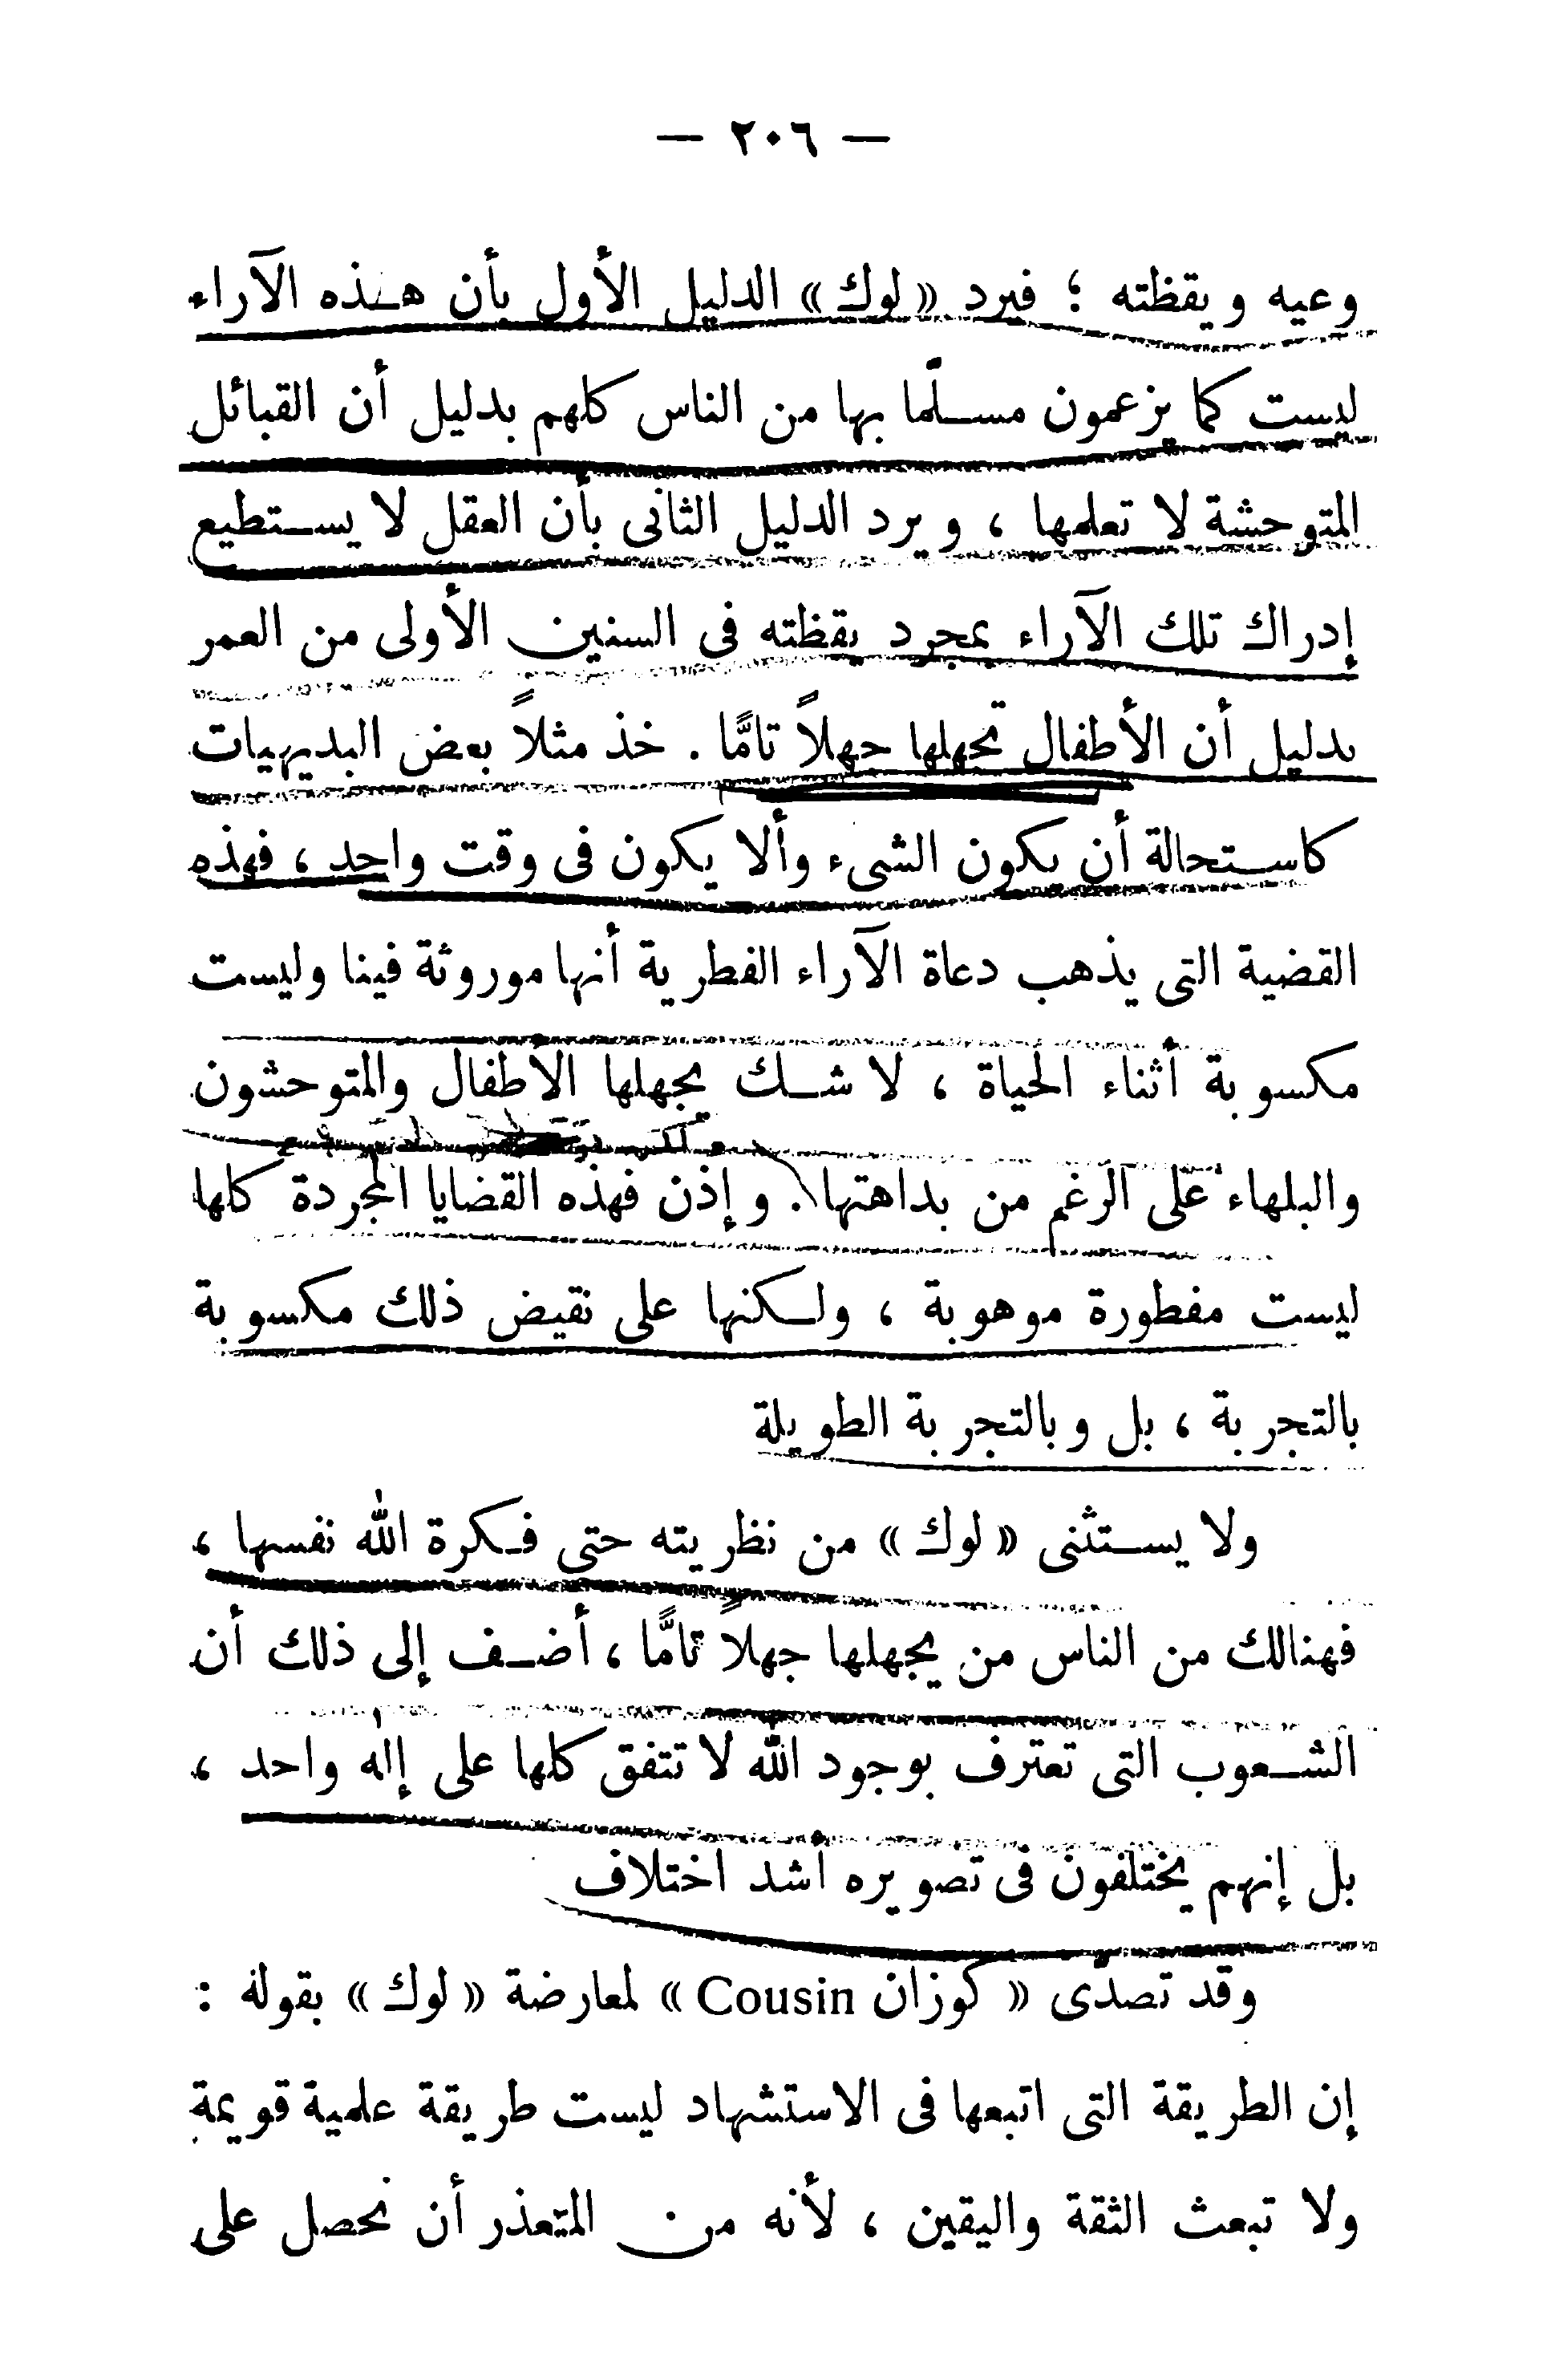 — ٢٠٦ —
وعيه ويقظته ؛ فيرد « لوك » الدليل الأول بأن هذه الآراء
ليست كما يزعمون مسلّما بها من الناس كلهم بدليل أن القبائل
المتوحشة لا تعلمها ، ويرد الدليل الثانى بأن العقل لا يستطيع
إدراك تلك الآراء بمجرد يقظته فى السنين الأولى من العمر
بدليل أن الأطفال تجهلها جهلاً تامًّا . خذ مثلاً بعض البديهيات
كاستحالة أن يكون الشىء وألا يكون فى وقت واحد ، فهذه
القضية التى يذهب دعاة الآراء الفطرية أنها موروثة فينا وليست
مكسوبة أثناء الحياة ، لا شك يجهلها الأطفال والمتوحشون
والبلهاء على الرغم من بداهتها . وإذن فهذه القضايا المجردة كلها
ليست مفطورة موهوبة ، ولكنها على نقيض ذلك مكسوبة
بالتجربة ، بل وبالتجربة الطويلة
ولا يستثنى « لوك » من نظريته حتى فكرة الله نفسها ،
فهنالك من الناس من يجهلها جهلاً تامًّا ، أضف إلى ذلك أن
الشعوب التى تعترف بوجود الله لا تتفق كلها على إله واحد ،
بل إنهم يختلفون فى تصويره أشد اختلاف
وقد تصدى « كوزان Cousin » لمعارضة « لوك » بقوله :
إن الطريقة التى اتبعها فى الاستشهاد ليست طريقة علمية قويمة
ولا تبعث الثقة واليقين ، لأنه من المتعذر أن نحصل على